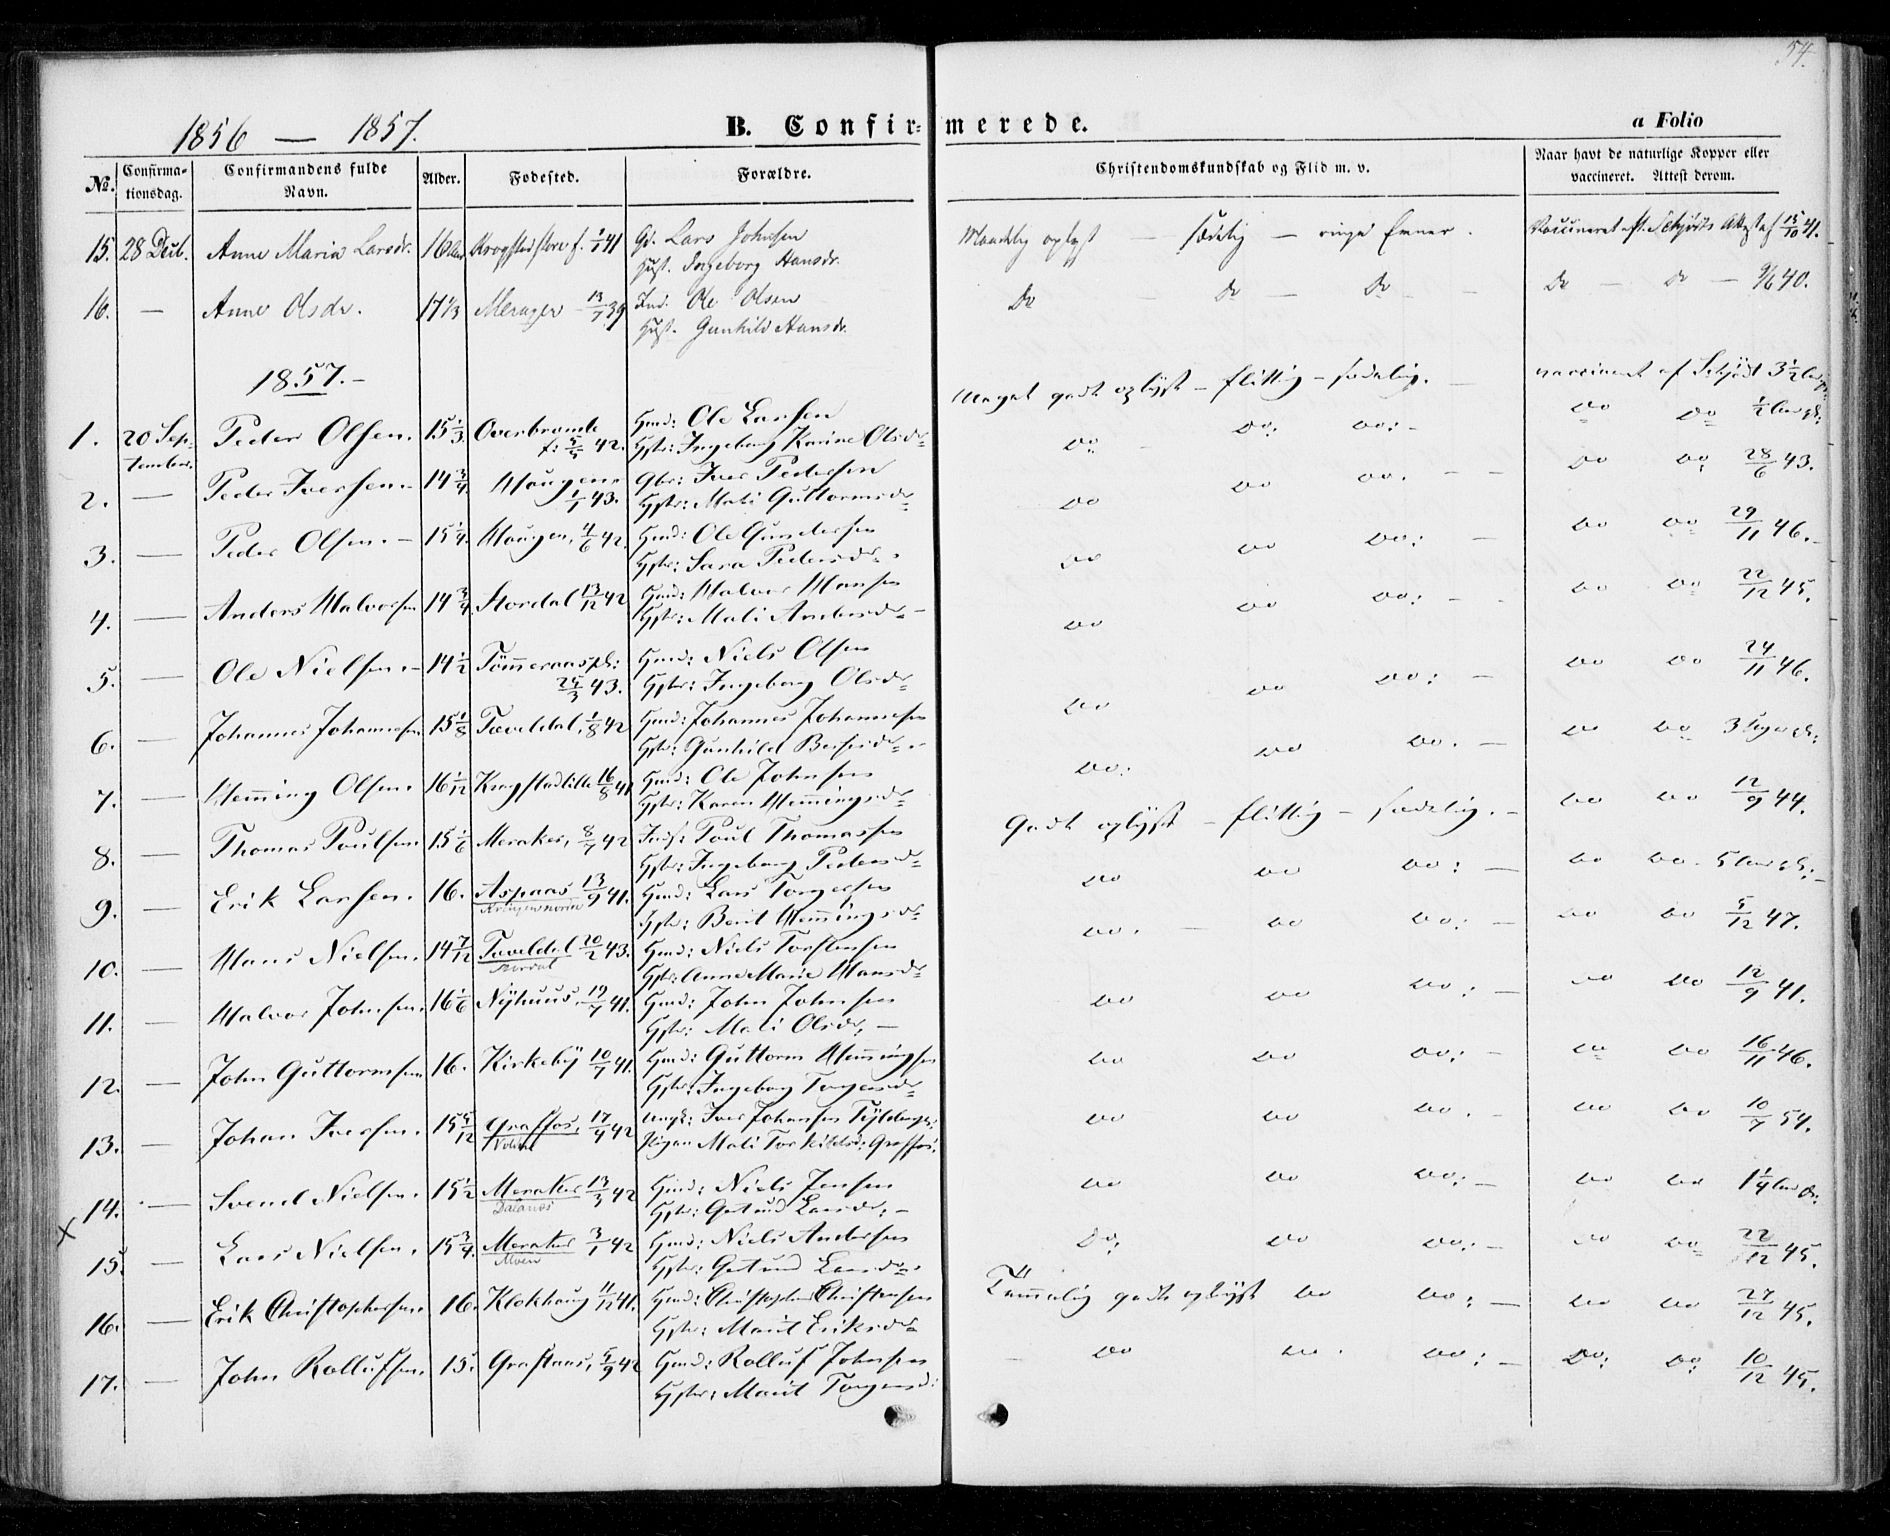 54.
1856 — 1857.
B. Confirmerede.
a Folio
No. Confirmationsdag. Confirmandens fulde Navn. Alder. Fødested. Forældre. Christendomskundskab og Flid m. v. Naar havt de naturlige Kopper eller vaccineret. Attest derom.
15. 28 Anne Maria Larsdr. 16 Krogstadstore f. 1/1 41 Gd. Lars Johnsen
Hust. Ingeborg Hansdr.
Maadelig oplyst — sædelig — ringe Evner. Vaccineret Schjødts Attest af 15/10 41.
16. — Anne Olsdr. 17 1/3 Merager 13/7 39 Ind. Ole Olsen
Hust. Gunhild Hansdr.
Do — Do — Do — Do — Do — 9/6 40.
1857.-
1. 20 September. Peder Olsen. 15 1/3 Overbromle f: 5/5 42. Gmd: Ole Larsen
Hstr: Ingeborg Karine Olsdr
Meget godt oplyst — flittig — sædelig. vaccineret af Schjødt 3 1/2
2. — Peder Iversen. 14 3/4 Haugen 1/1 43. Gbr: Iver Pedersen
Hstr: Mali Guttormsdr
do do: do: — do do 1/2
3. — Peder Olsen. 15 1/4 Haugen, 4/6 42. Gmd: Ole Gundersen
Hstr: Sara Pedersdr
do do do. — do do 28/6 43.
4. — Anders Halvorsen 14 3/4 Stordal 13/12 42 Gmd: Halvor Hansen
Hstr: Mali Andersdr
do do do: — do do 29/11 46.
5. — Ole Nielsen. 14 1/2 Tømmeraaspl: 25/3 43. Gmd: Niels Olsen
Hstr: Ingeborg Olsdr
do do do: — do do 22/12 45.
6. — Johannes Johannesen 15 1/8 Tæveldal, 1/8 42 Gmd: Johannes Johannesen
Hstr: Gunhild
do do do: — do do 24/11 46.
7. — Hemming Olsen. 16 1/12 Krogstadlille 16/8 41 Gmd: Ole Johnsen
Hstr: Karen Hemmingsdr
do: do do. — do do 3
8. — Thomas Poulsen 15 1/6 Meraker, 8/7 42 Poul Thomassen
Hstr: Ingeborg Pedersdr
Godt oplyst — flittig — sædelig. — do do 12/9 44.
9. — Erik Larsen. 16. Aspaas 13/9 41. Gmd: Lars Torgersen
Hstr: Berit Hemmingsdr
do do do: — do do. 5
10. — Hans Nielsen. 14 7/12 Tæveldal 20/2 43. Gmd: Niels Torstensen
Stordal Hstr: Anne Marie Hansdr
do. do do: — do do 5/12 47.
11. — Halvor Johnsen. 16 1/6 Nÿhuus, 19/7 41. Gmd: John Johnsen
Hstr: Mali Olsdr. —
do do do: — do do 12/9 41.
12. — John Guttormsen 16. Kirkebÿ 10/7 41. Gmd: Guttorm Hemmingsen
Hstr: Ingeborg Torgersdr
do do do: — do do 16/11 46.
13. — Johan Iversen. 15 5/12 Graffos, 17/4 42 Ungk: Iver Johansen
Pigen Mali Torkildsdr: Graffos.
do do do. — do do 10/7 54.
14. — Svend Nielsen. 15 1/2 Meraker 13/3 42 Gmd: Niels Jensen
Dalaaos Hstr: Gertrud Larsdr. —
do do do: — do do 1 1/4
x 15. — Lars Nielsen. 15 3/4 Meraker 3/1 42 Gmd: Niels Andersen
Moen Hstr: Gertrud Larsdr
Do: do do: — do do 22/12 45.
16. — Erik Christophersen. 16. Klokhaug 11/12 41. Gmd: Christopher Christensen
Hstr: Marit Eriksdr
Temmelig godt oplyst do do: — do do 27/12 45.
17. — John Rollufsen. 15. Graftaas, 5/9 42 Gmd: Rolluf Johnsen
Hstr: Marit Torgersd:
— do do. do: — Do: do: 10/12 45.